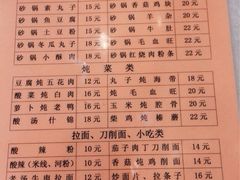 砂锅素丸子 15元 砂锅香菇鸡块 20元
砂锅鱼豆腐 15元 砂锅羊杂 20元
砂锅土豆粉 15元 砂锅牛肚 22元
砂锅冬瓜丸子 18元 砂锅毛血旺 20元
砂锅小酥肉 18元 砂锅红烧肉粉条 22元
炖菜类
豆腐炖五花肉 12元 丸子炖海带 18元
酸菜炖白肉 16元 酸菜炖毛血旺 20元
萝卜炖老鸭 16元 玉米炖腔骨 20元
酸汤什锦 18元 柴鸡炖榛蘑 22元
拉面、刀削面、小吃类
酸辣粉 10元 茄子肉丁刀削面 14元
酸辣(米线、河粉) 10元 香菇炖鸡削面 14元
老汤牛肉拉面 12元 烩面片、拉条子 16元